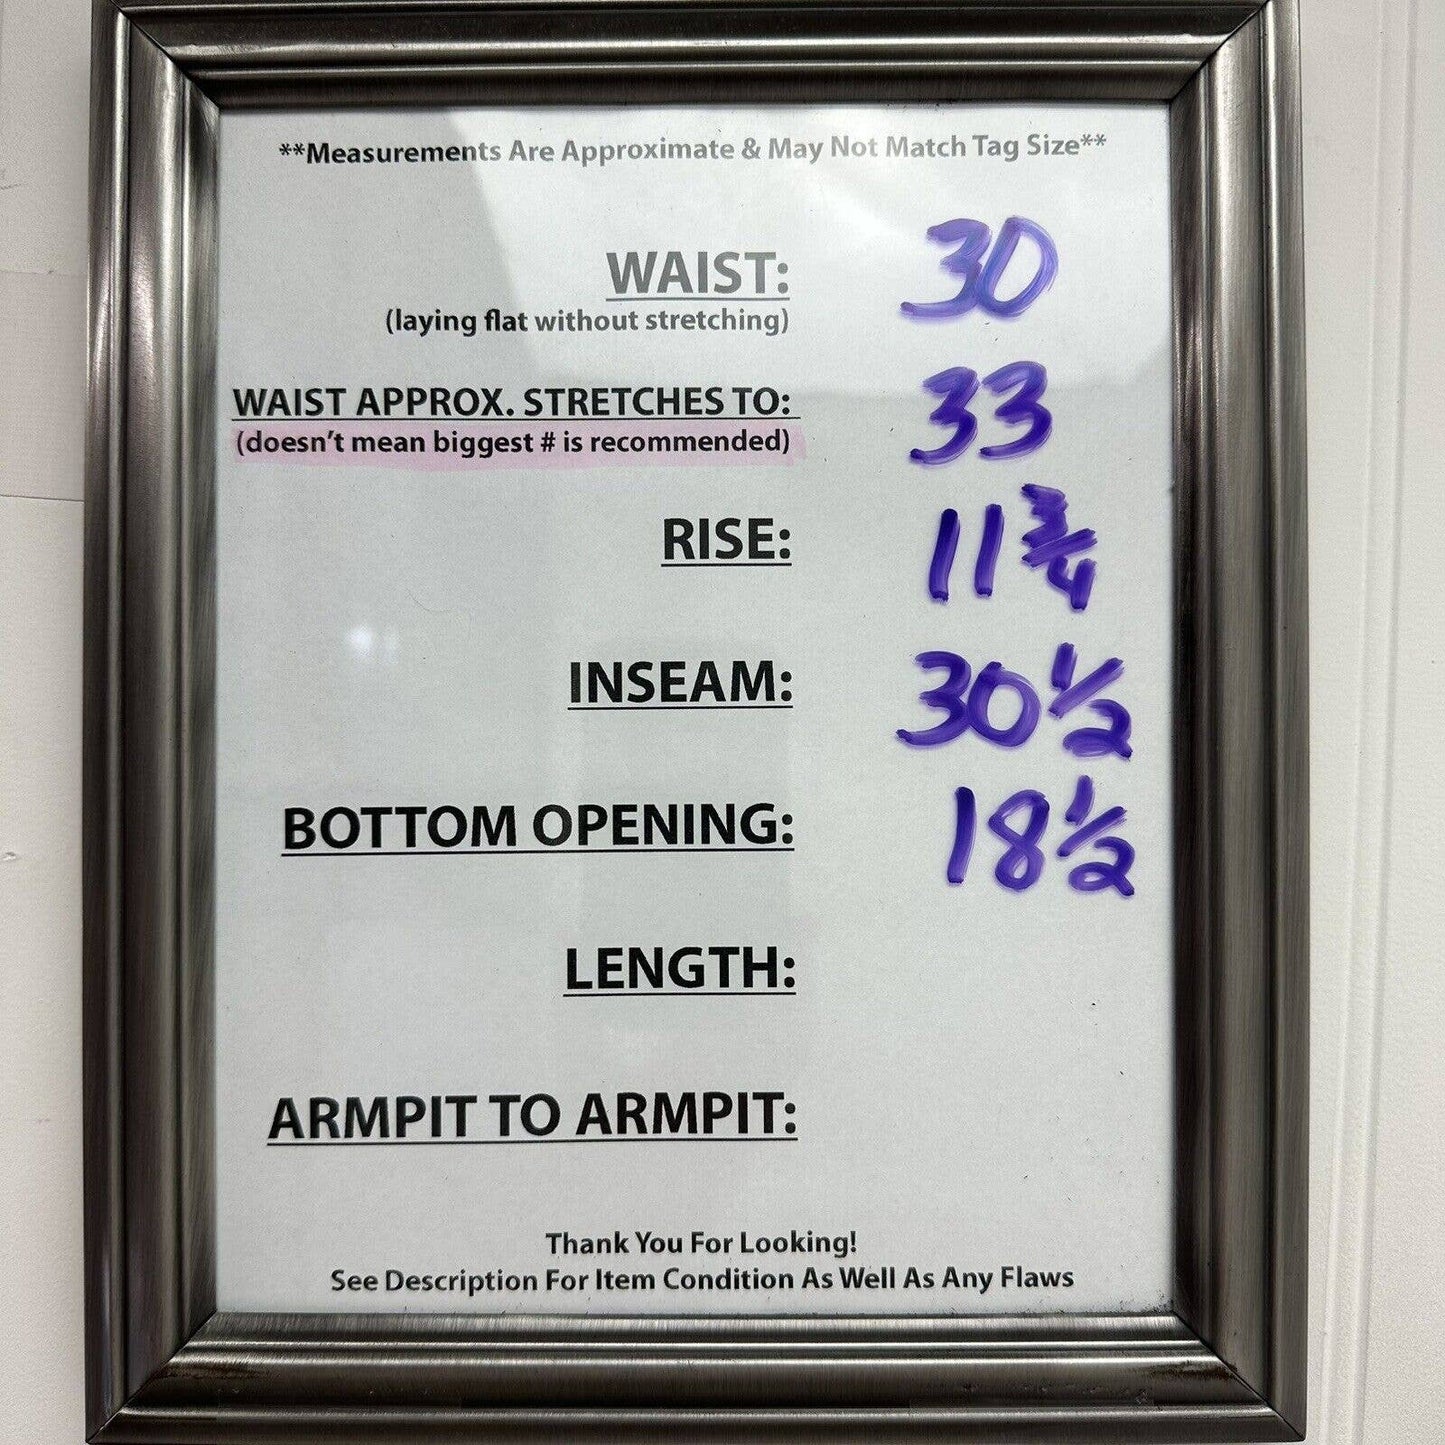 **Measurements Are Approximate & May Not Match Tag Size**
WAIST: 30
(laying flat without stretching)
WAIST APPROX. STRETCHES TO: 33
(doesn't mean biggest # is recommended)
RISE: 11 3/4
INSEAM: 30 1/2
BOTTOM OPENING: 18 1/2
LENGTH:
ARMPIT TO ARMPIT:
Thank You For Looking!
See Description For Item Condition As Well As Any Flaws